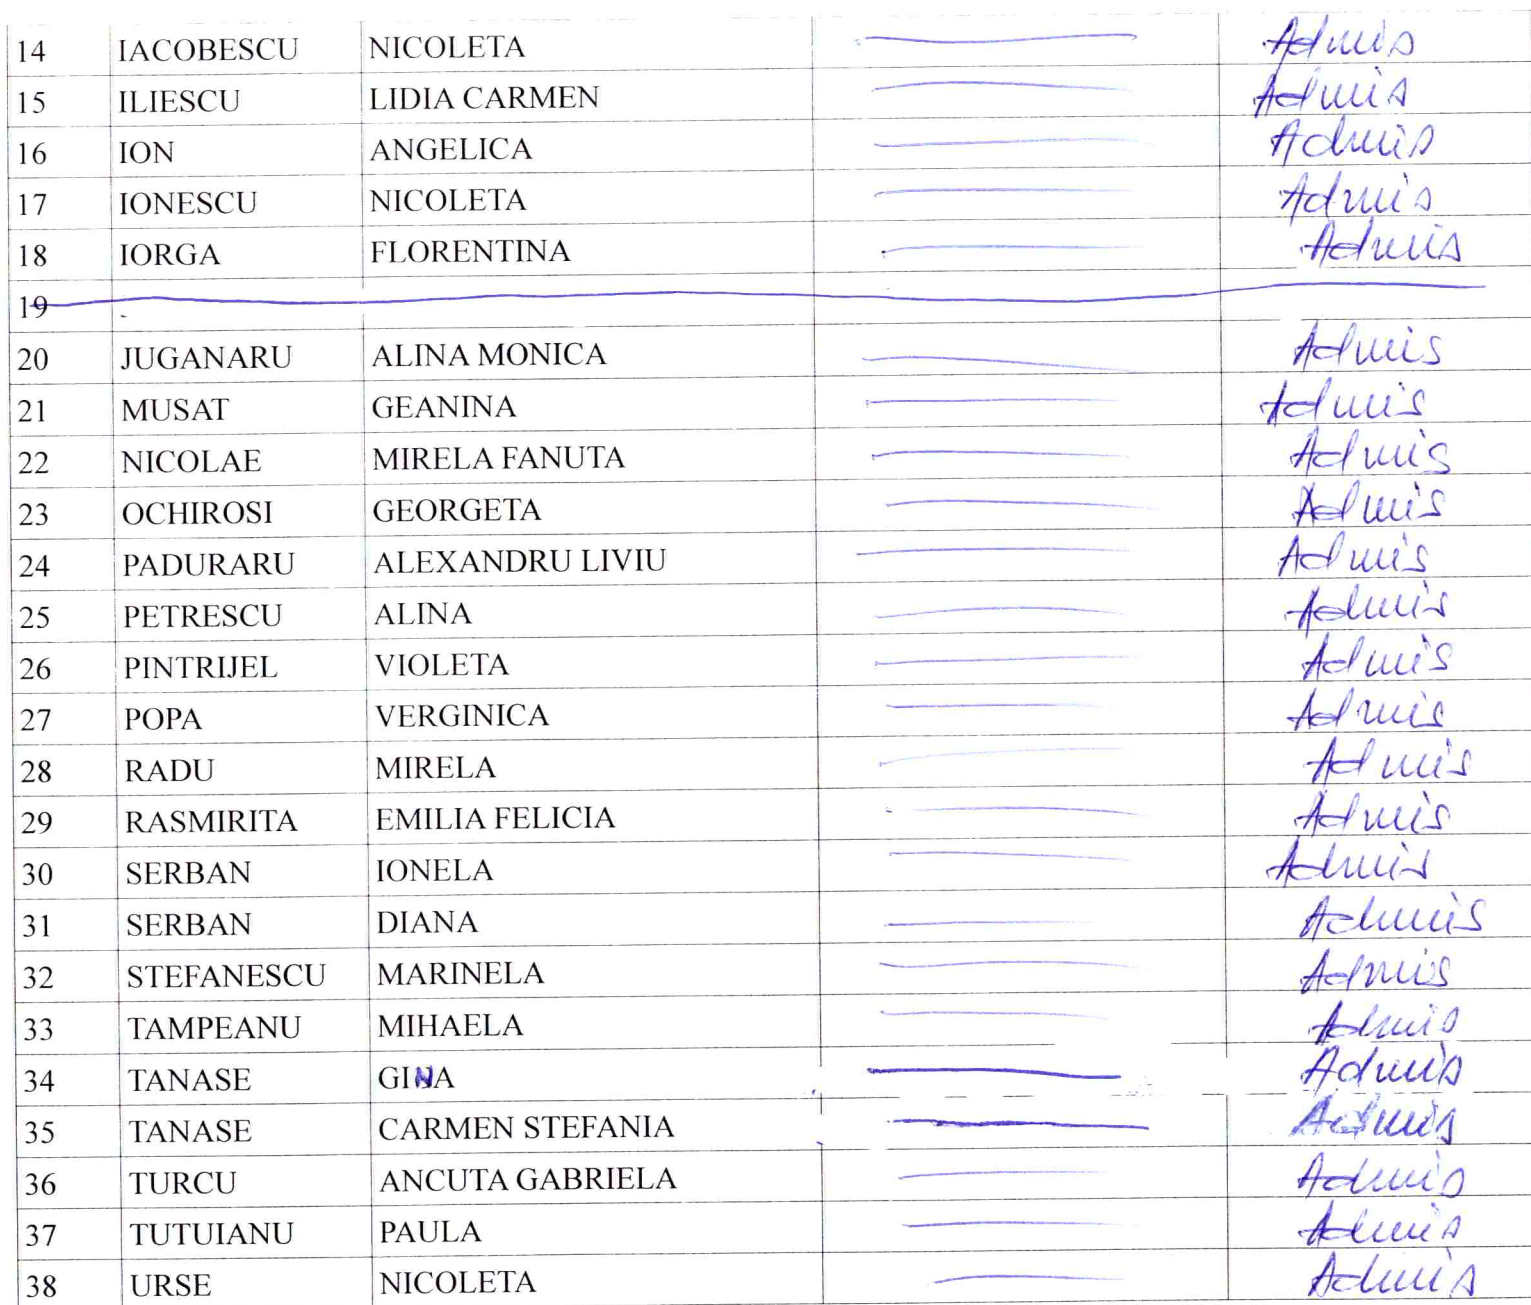 14 IACOBESCU NICOLETA Admis
15 ILIESCU LIDIA CARMEN Admis
16 ION ANGELICA Admis
17 IONESCU NICOLETA Admis
18 IORGA FLORENTINA Admis
19
20 JUGANARU ALINA MONICA Admis
21 MUSAT GEANINA Admis
22 NICOLAE MIRELA FANUTA Admis
23 OCHIROSI GEORGETA Admis
24 PADURARU ALEXANDRU LIVIU Admis
25 PETRESCU ALINA Admis
26 PINTRIJEL VIOLETA Admis
27 POPA VERGINICA Admis
28 RADU MIRELA Admis
29 RASMIRITA EMILIA FELICIA Admis
30 SERBAN IONELA Admis
31 SERBAN DIANA Admis
32 STEFANESCU MARINELA Admis
33 TAMPEANU MIHAELA Admis
34 TANASE GINA Admis
35 TANASE CARMEN STEFANIA Admis
36 TURCU ANCUTA GABRIELA Admis
37 TUTUIANU PAULA Admis
38 URSE NICOLETA Admis